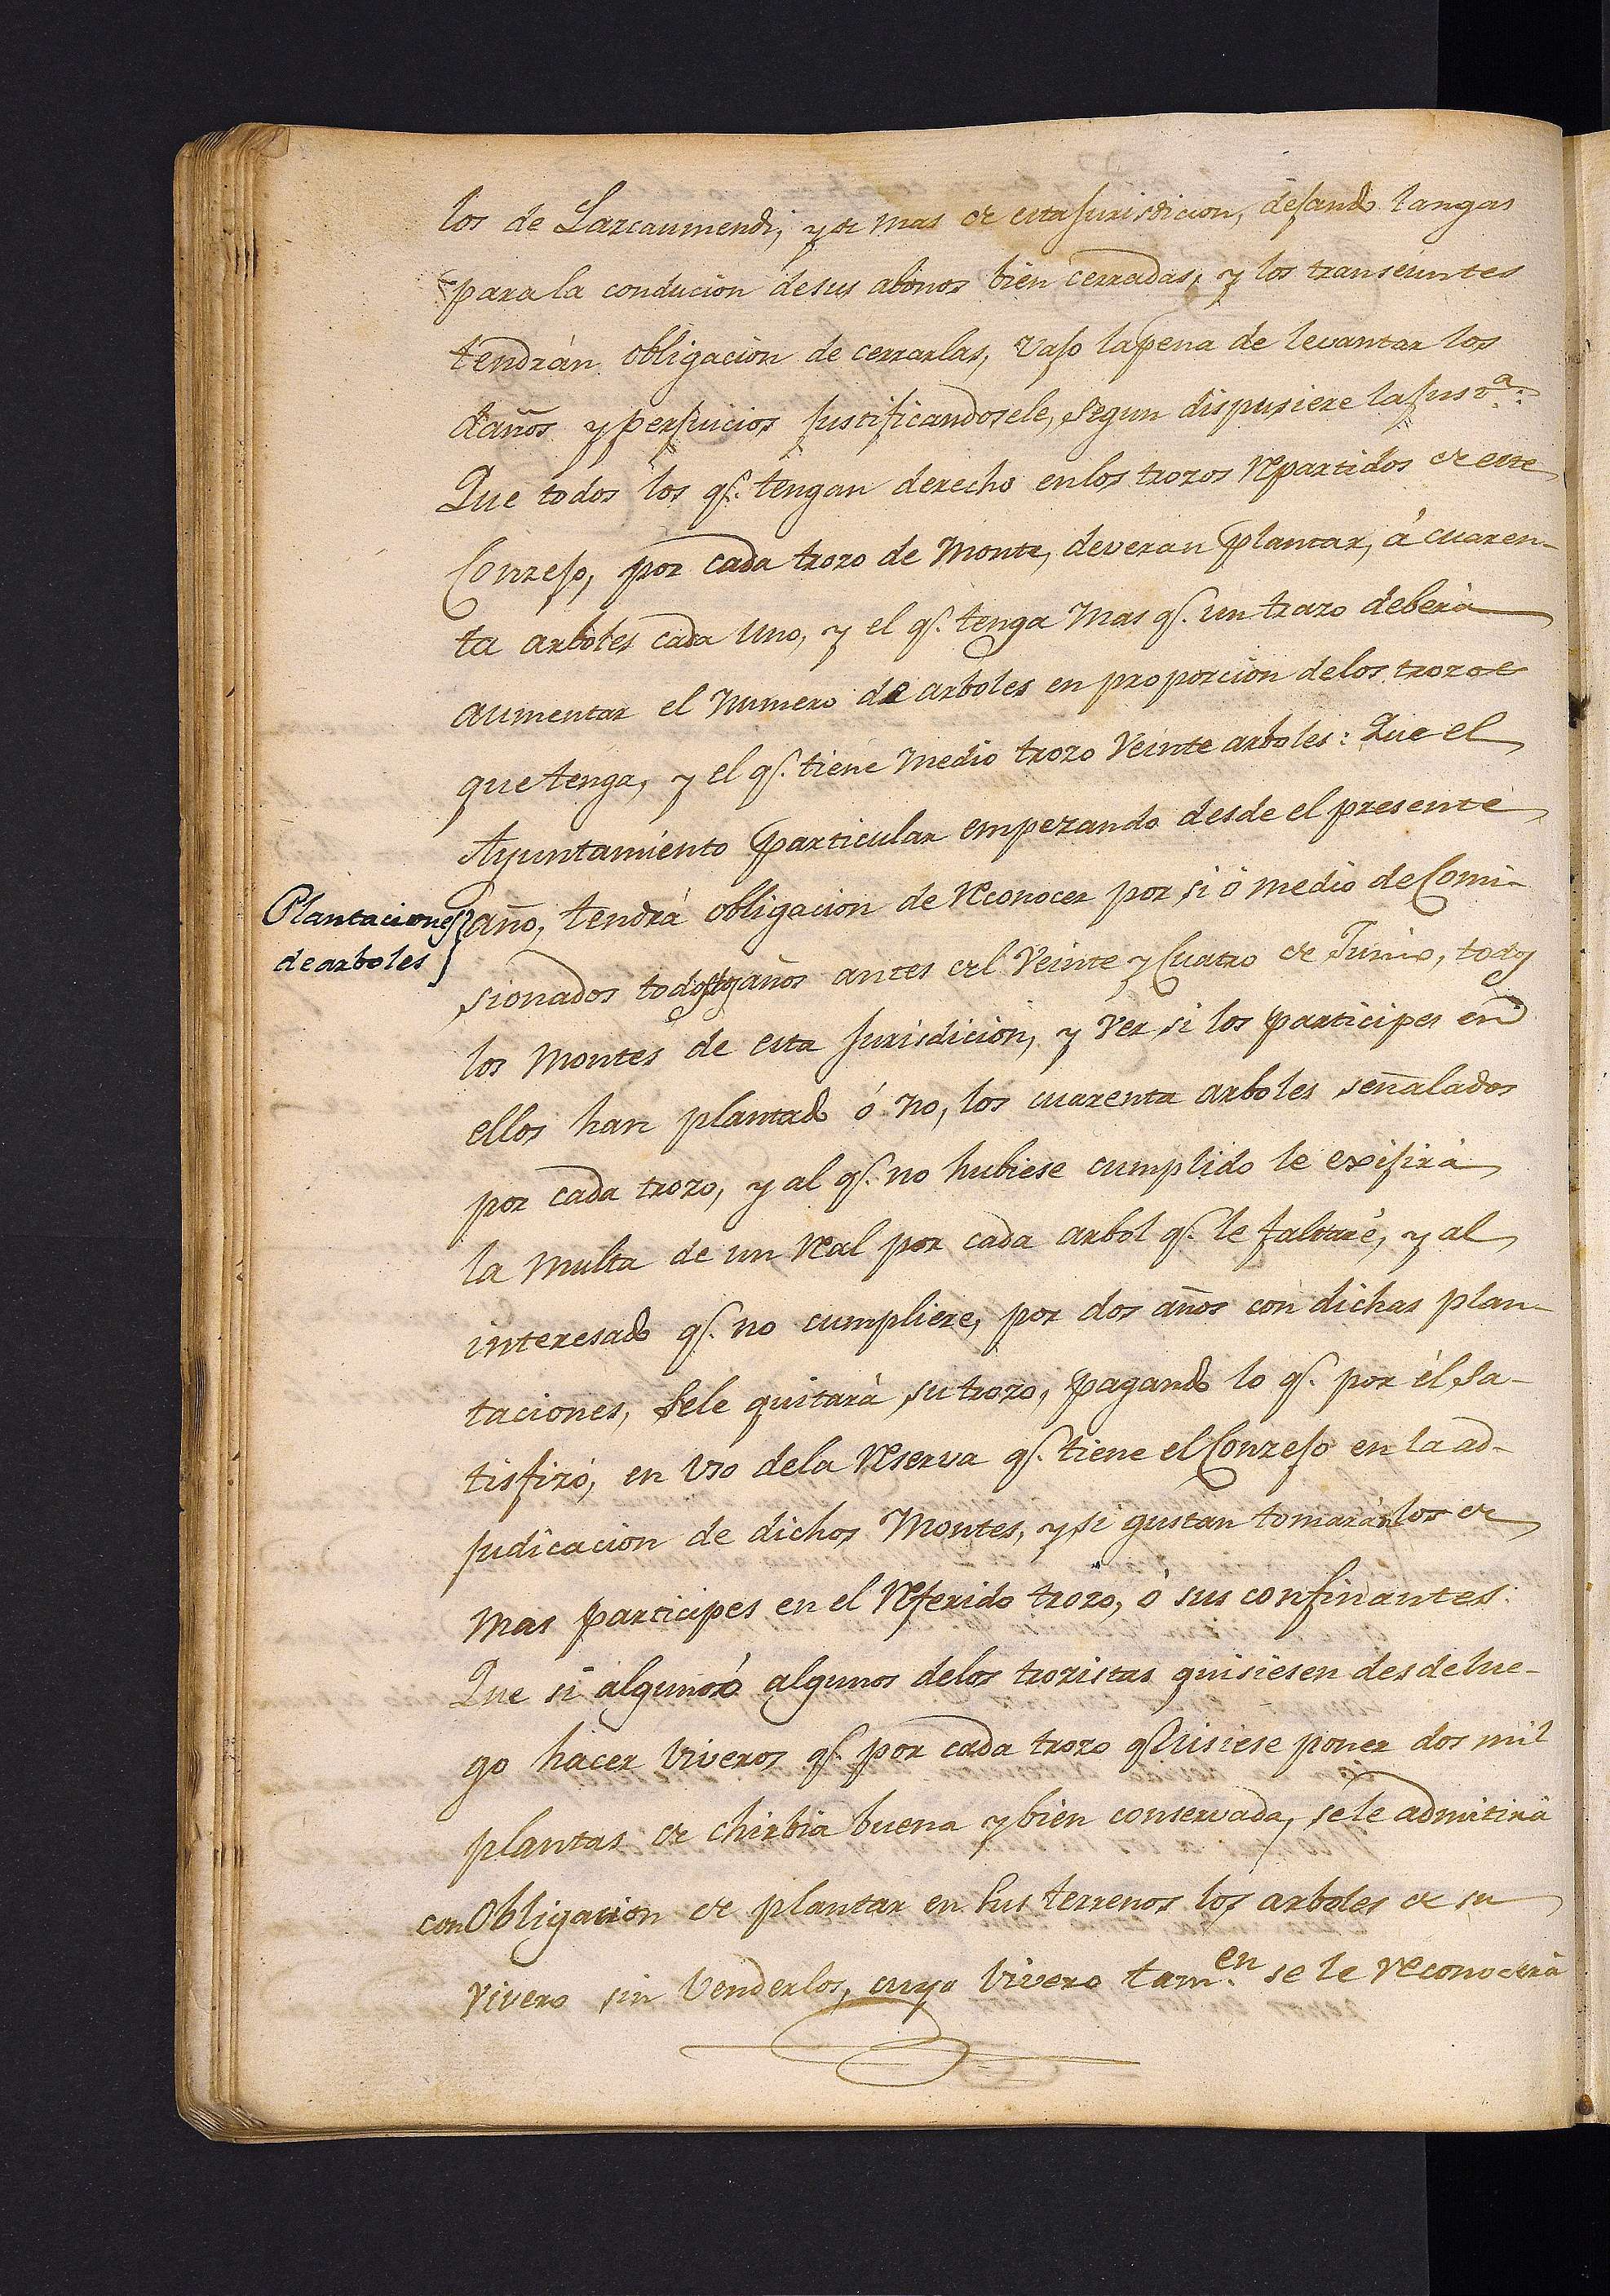 los de Larcaumendi, y de mas de esta Jurisdicion, dejando langas
para la conducion de sus abonos bien cerradas, y los transeuntes
tendrán obligacion de cerrarlas, vajo la pena de levantar los
daños y perjuicios justificandosele, segun dispusiere la Justª:
Que todos los qe. tengan derecho en los trozos repartidos de este
Conzejo, por cada trozo de Monte, deveran plantar, á cuaren-
ta arboles cada uno, y el qe. tenga mas qe. un trazo deberá
aumentar el numero de arboles en proporcion de los trozos
que tenga, y el qe. tiene medio trozo veinte arboles: Que el
Ayuntamiento particular empezando desde el presente
Plantaciones
de arboles
año, tendrá obligacion de reconocer por si ó medio de Comi-
sionados todos los años antes del veinte y Cuatro de Junio, todos
los Montes de esta Jurisdicion, y ver si los participes en
ellos han plantado ó no, los cuarenta arboles señalados
por cada trozo, y al qe. no hubiese cumplido le exijirá
la multa de un real por cada arbol qe. le faltaré, y al
interesado qe. no cumpliere, por dos años con dichas plan-
taciones, se le quitará su trozo, pagando lo qe. por él sa-
tisfizó, en uso de la reserva qe. tiene el Conzejo en la ad-
judicacion de dichos Montes, y si gustan tomarán los de
mas participes en el referido trozo, ó sus confinantes.
Que si alguno ó algunos de los trozistas quisiesen desde lue-
go hacer viveros qe. por cada trozo quisiese poner dos mil
plantas de chirbia buena y bien conservada, se le admitirá
con obligacion de plantar en sus terrenos los arboles de su
vivero sin venderlos, cuyo vivero tamen. se le reconocerá